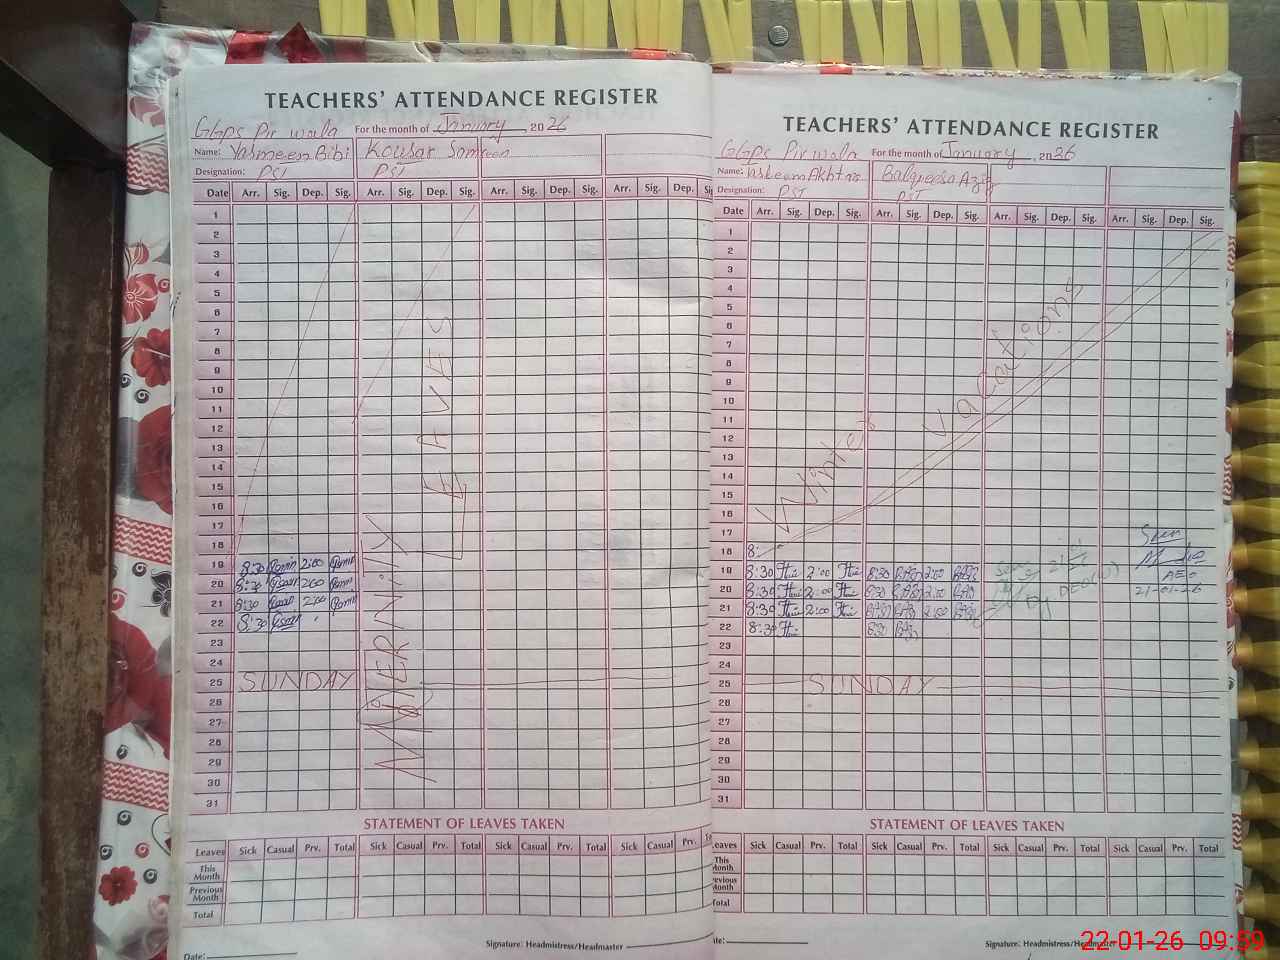 TEACHERS' ATTENDANCE REGISTER
GGPS Pir wala For the month of January, 2026
Name: Yasmeen Bibi Kousar Samreen
Designation: PST PST
Date Arr. Sig. Dep. Sig. Arr. Sig. Dep. Sig. Arr. Sig. Dep. Sig. Arr. Sig. Dep.
1
2
3
4
5
6
7
8
9
10
11
12
13
14
15
16
17
18
19 8:30 2:00
20 8:30 2:00
21 8:30 2:00
22 8:30
23
24
25 SUNDAY
26
27
28
29
30
31
LEAVES
STATEMENT OF LEAVES TAKEN
Leaves Sick Casual Prv. Total Sick Casual Prv. Total Sick Casual Prv. Total Sick Casual Prv.
This Month
Previous Month
Total
Signature: Headmistress/Headmaster
Date:
TEACHERS' ATTENDANCE REGISTER
GGPS Pir wala For the month of January, 2026
Name: Akhtar Balqees Aziz
Designation: PST PST
Date Arr. Sig. Dep. Sig. Arr. Sig. Dep. Sig. Arr. Sig. Dep. Sig. Arr. Sig. Dep. Sig.
1
2
3
4
5
6
7
8
9
10
11
12
13
14
15
16
17
18 8:
19 8:30 2:00 8:30 2:00
20 8:30 2:00 8:30 2:00
21 8:30 2:00 2:00
22 8:30 8:30
23
24
25 SUNDAY
26
27
28
29
30
31
Winter Vacations
Seen
AEO
21-01-26
Dy DEO(W)
STATEMENT OF LEAVES TAKEN
Leaves Sick Casual Prv. Total Sick Casual Prv. Total Sick Casual Prv. Total Sick Casual Prv. Total
This Month
Previous Month
Total
Signature: Headmistress/Headmaster
22-01-26 09:59